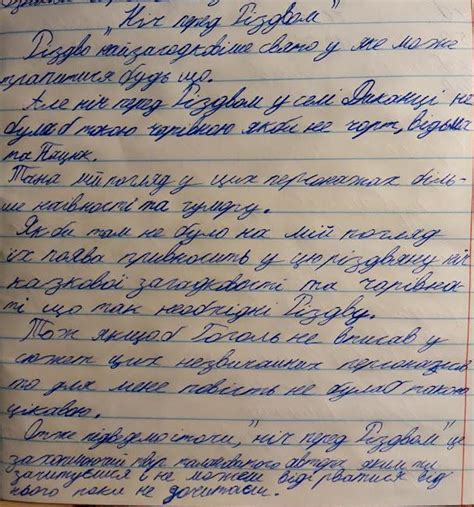 „Ніч перед Різдвом"
Різдво найзагадковіше свято у яке може
трапитися будь що.
Але ніч перед Різдвом у селі Диканці не
була б такою чарівною якби не чорт, відьма
та Пацюк.
Та на мій погляд у цих персонажах біль-
ше наївності та гумору.
Як би там не було на мій погляд
їх поява привносить у цю різдвяну ніч
казкової загадковості та чарівнос
ті що так необхідні Різдву.
Тож якщо б Гоголь не вписав у
сюжет цих незвичайних персонажів
то для мене повість не була б такою
цікавою.
Отже підведемо ітоги, „ніч перед Різдвом" це
захоплюючий твір талановитого автора яким ти
зачитуєшся і не можеш відірватися від
нього поки не дочитаєш.